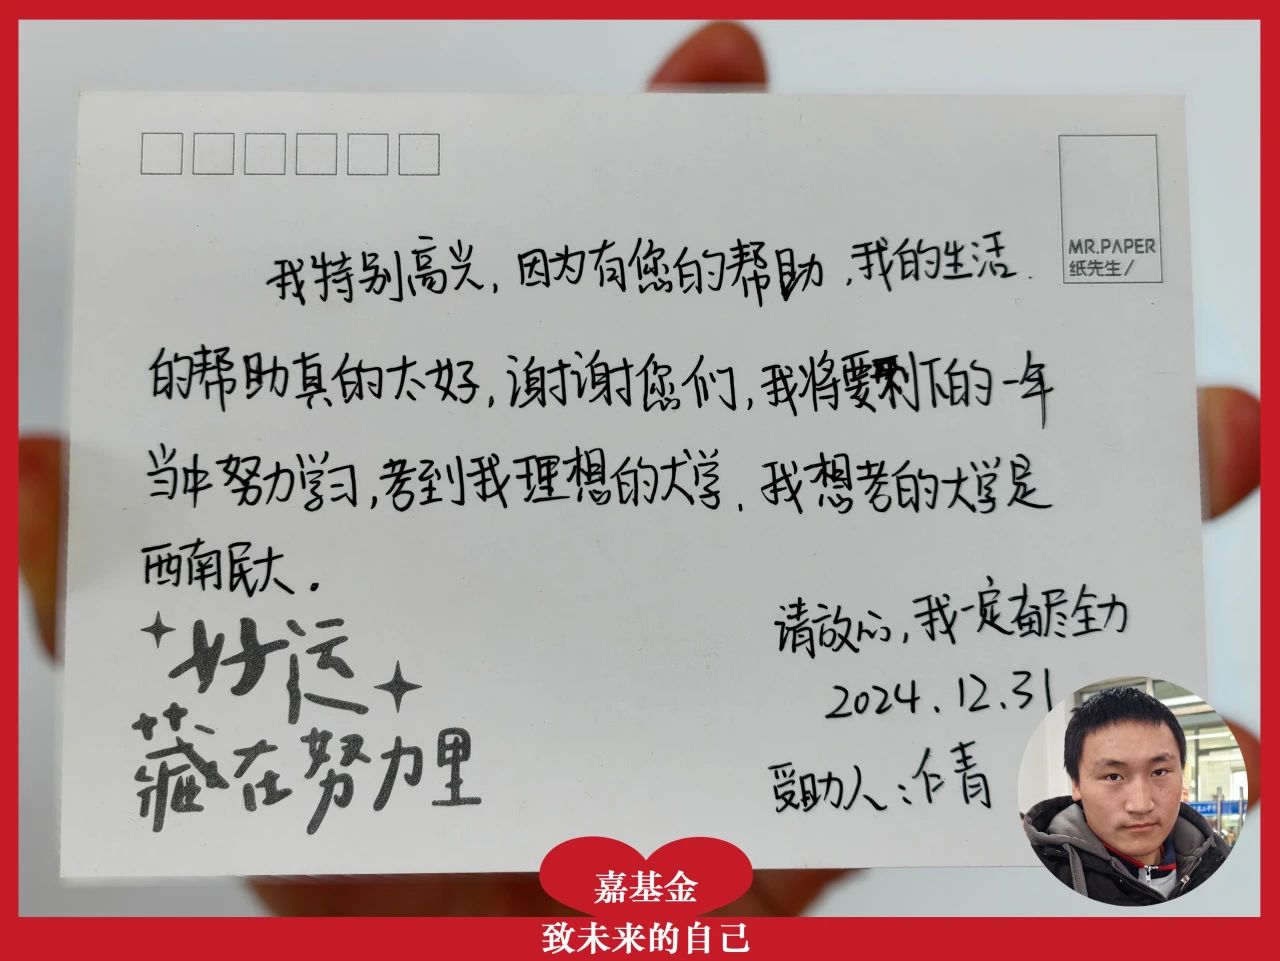 MR.PAPER
纸先生/
我特别高兴，因为有您的帮助，我的生活
的帮助真的太好，谢谢您们，我将要剩下的一年
当中努力学习，考到我理想的大学．我想考的大学是
西南民大．
请放心，我一定奋尽全力
2024.12.31
受助人：青
好运
藏在努力里
嘉基金
致未来的自己